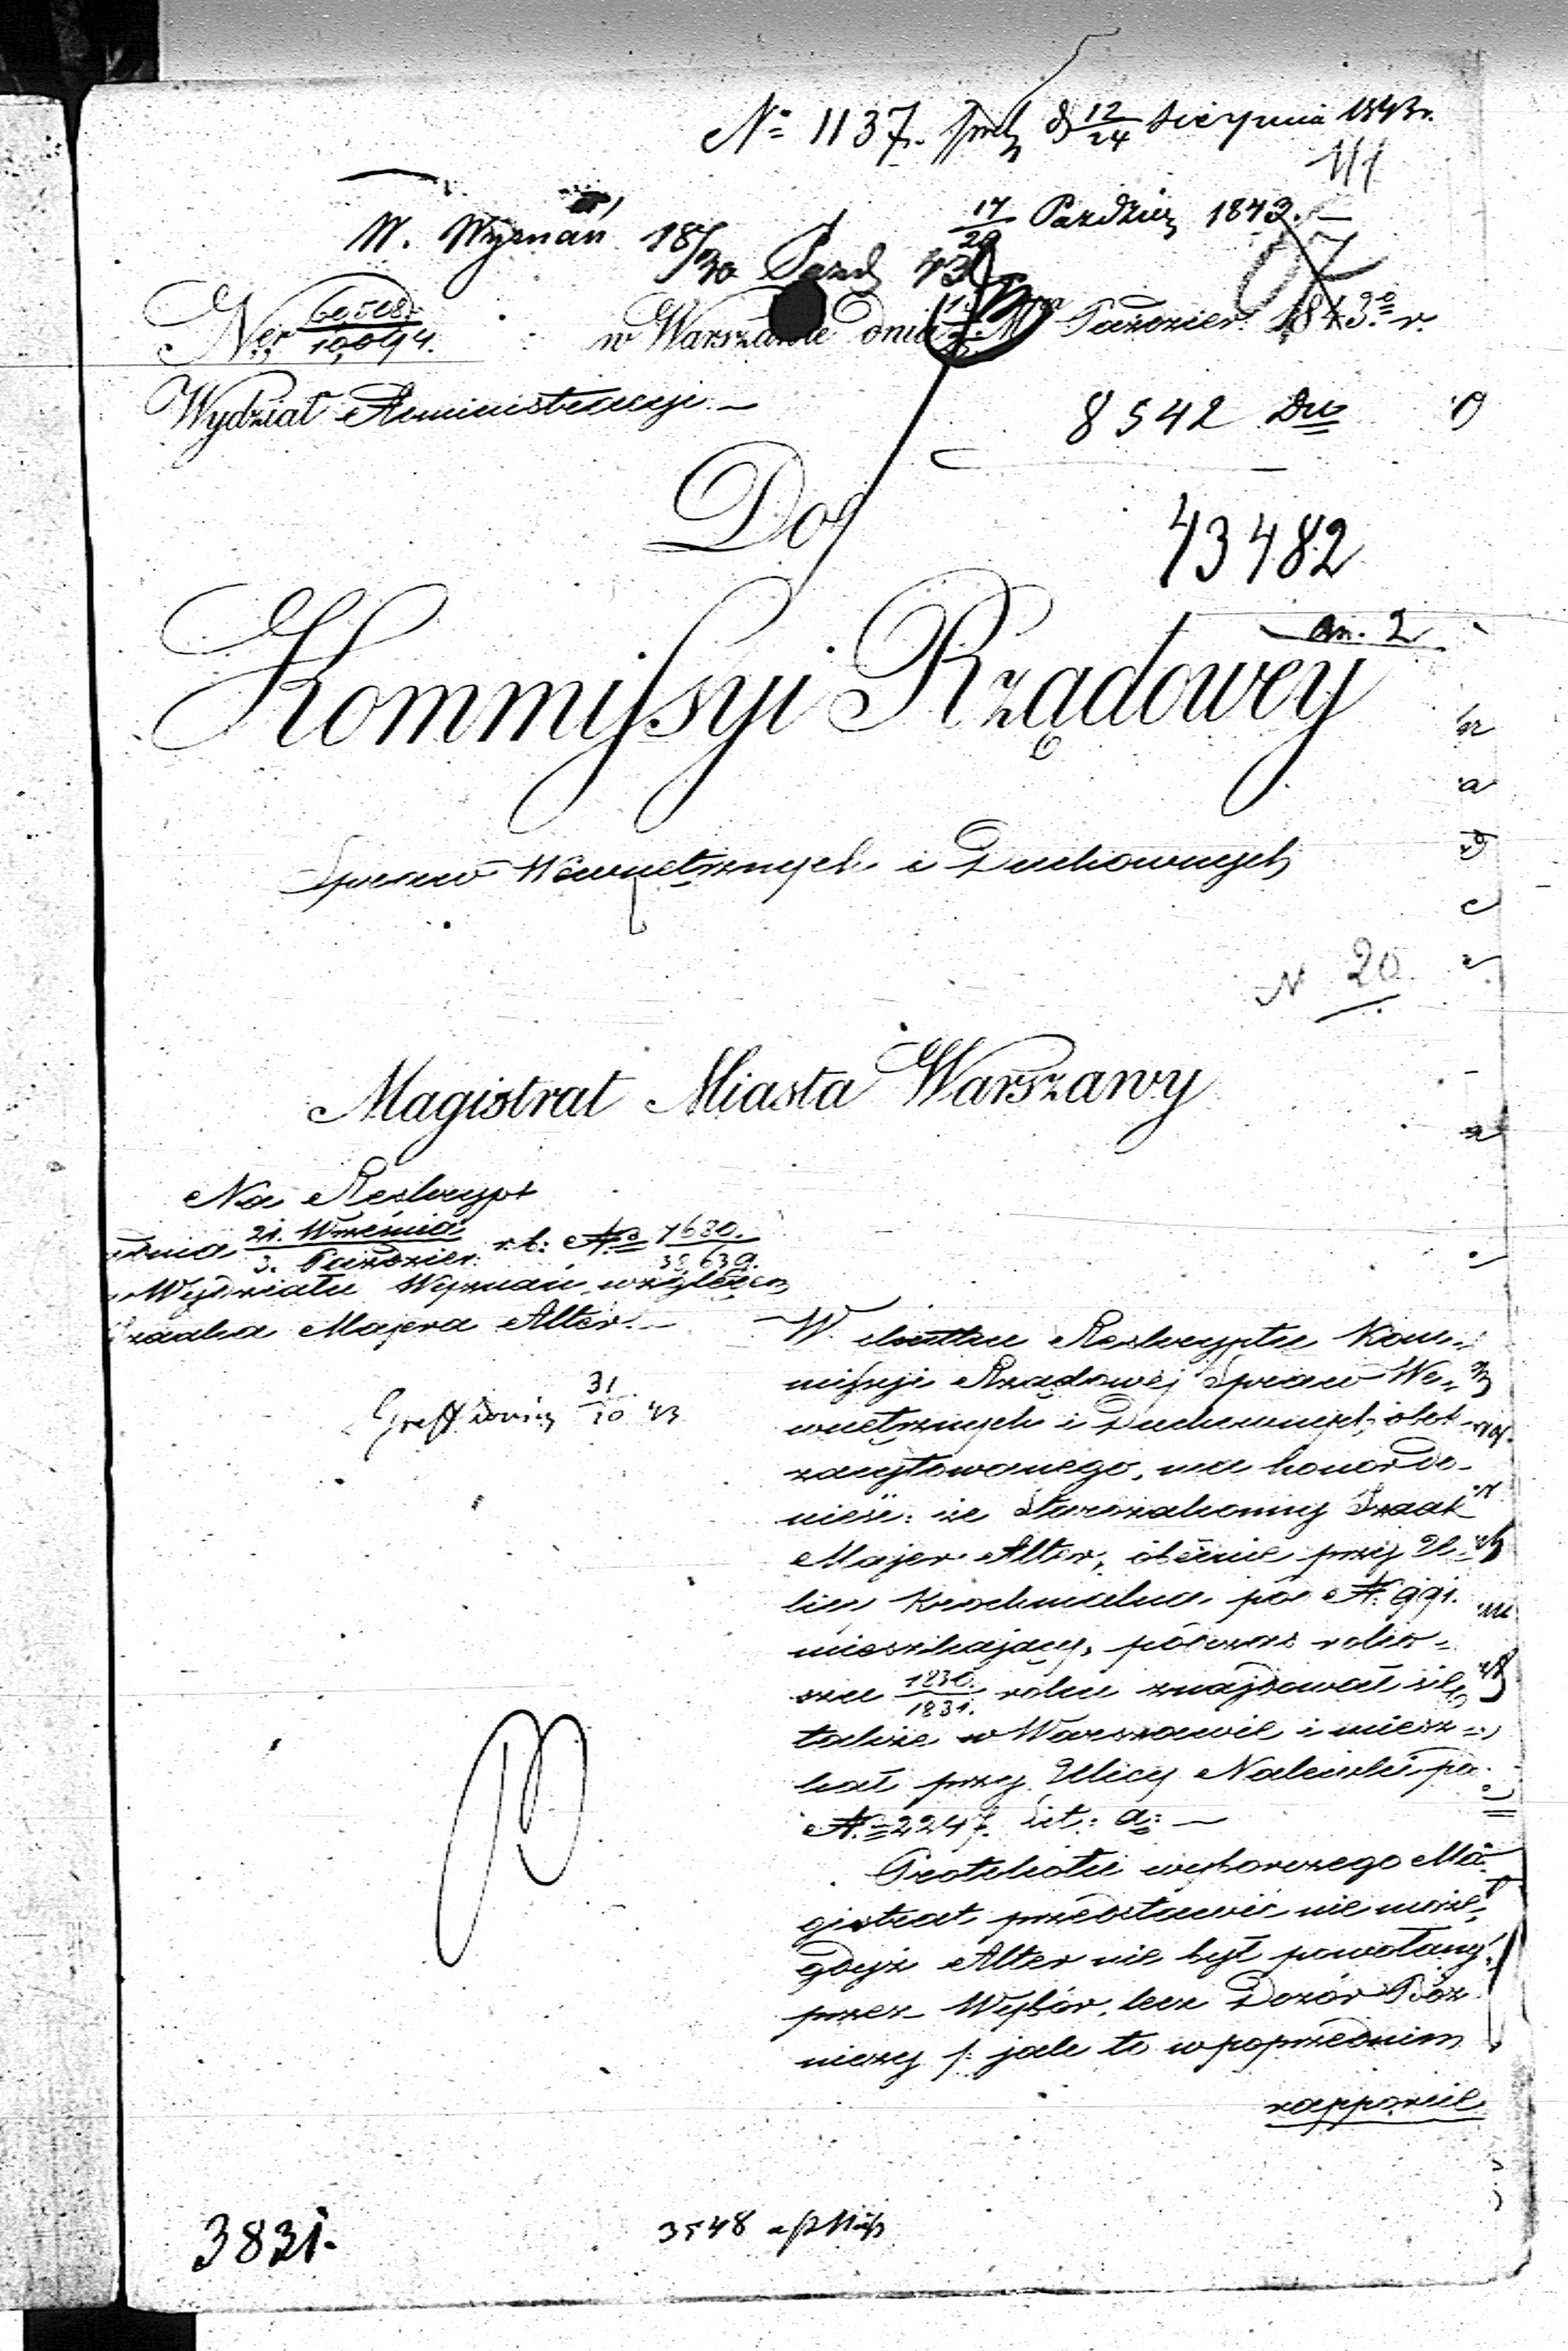 Nº 1137. d 12/24 Sierpnia 1843 r.
17/29 Paździer 1843.
W. Wyznań 18/30 Paźd 43
Ner 10,044. w Warszawie dnia Paździer. 1843. r.
Wydział Administracyi.
8542
Do
43482
an. 2
Kommissyi Rządowey
Spraw Wewnętrznych i Duchownych
N 20
Magistrat Miasta Warszawy
Na Reskrypt
z dnia 21. Września/3. Paździer. r. b. No 7680./38,639.
Wydziału Wyznań, względem
Izaaka Majera Alter.
31/10 43
W skutku Reskryptu Kom-
missyi Rządowej Spraw We-
wnętrznych i Duchownych, obok
zacytowanego, ma honor do-
nieść: że Starozakonny Izaak
Majer Alter, obecnie przy U-
licy Krochmalna pod N. 991.
mieszkający, podczas roko-
szu 1830./1831. roku znajdował się
także w Warszawie i miesz-
kał przy Ulicy Nalewki pod
N. 2247. Lit: a.
Protokołu wyborczego Ma-
gistrat przedstawić nie może,
gdyż Alter nie był powołany
przez Wybór, lecz Dozór Boż-
niczy /: jak to w poprzednim
rapporcie
3831.
3548